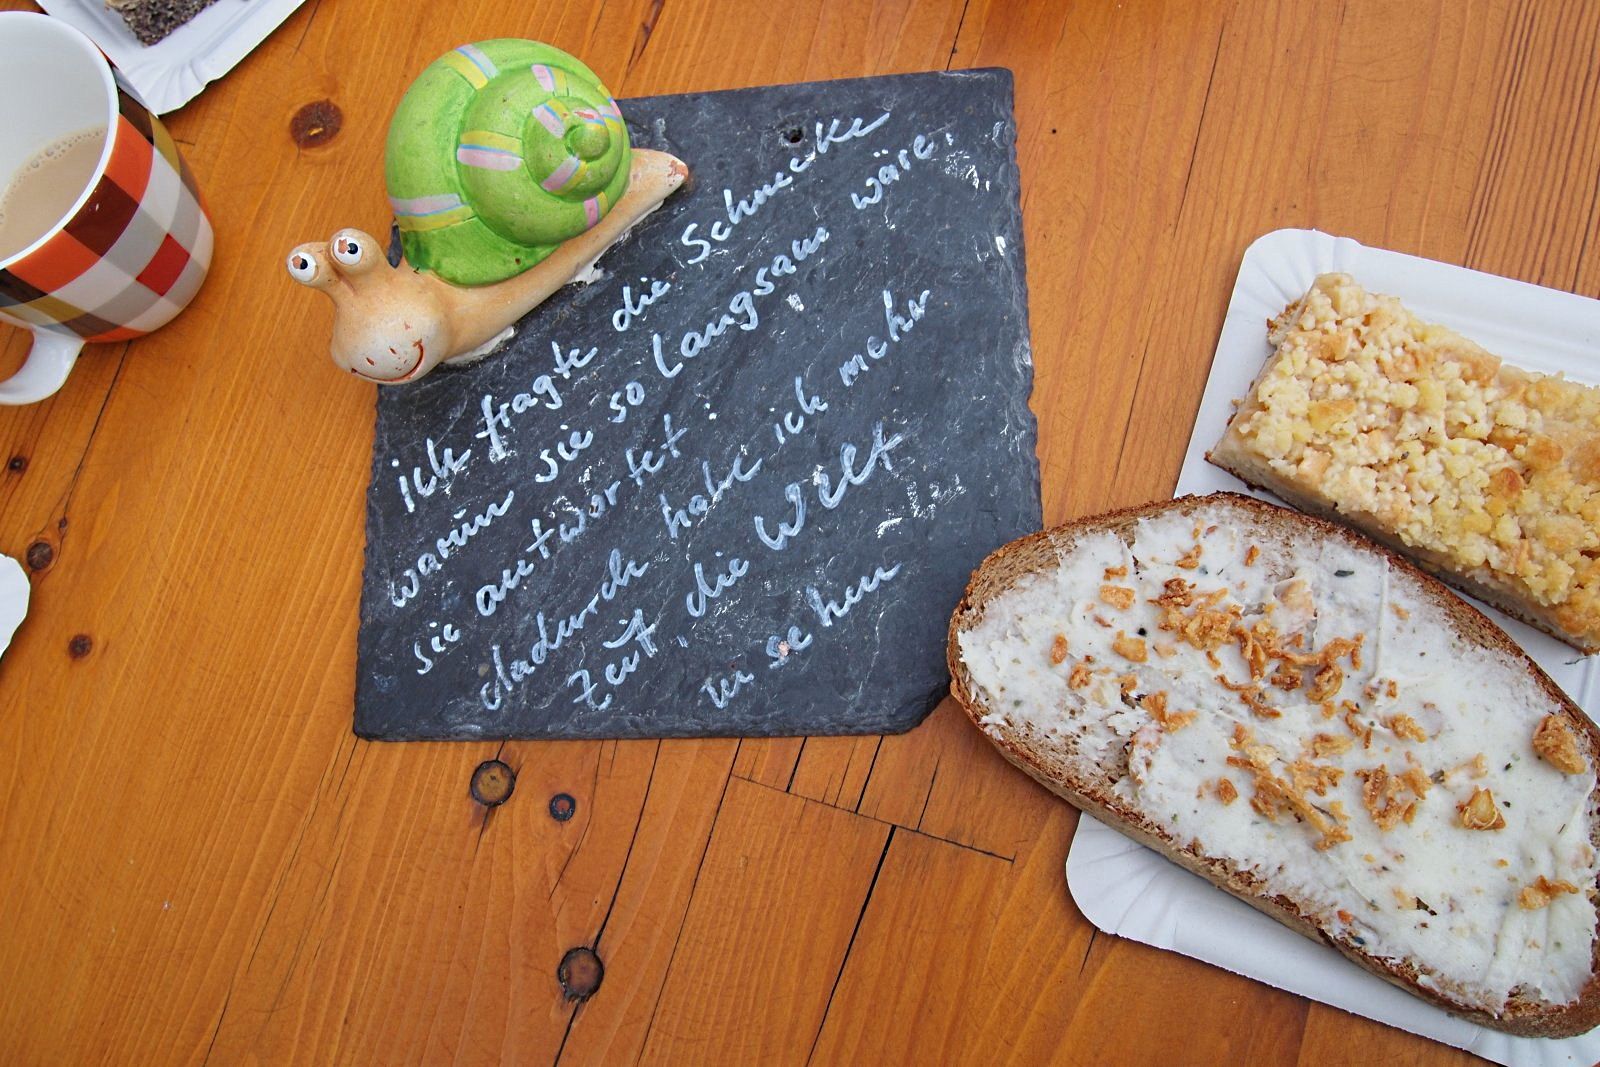 ich fragte die Schnecke
warum sie so Langsam wäre.
sie antwortet :
dadurch habe ich mehr
Zeit, die Welt
zu sehen